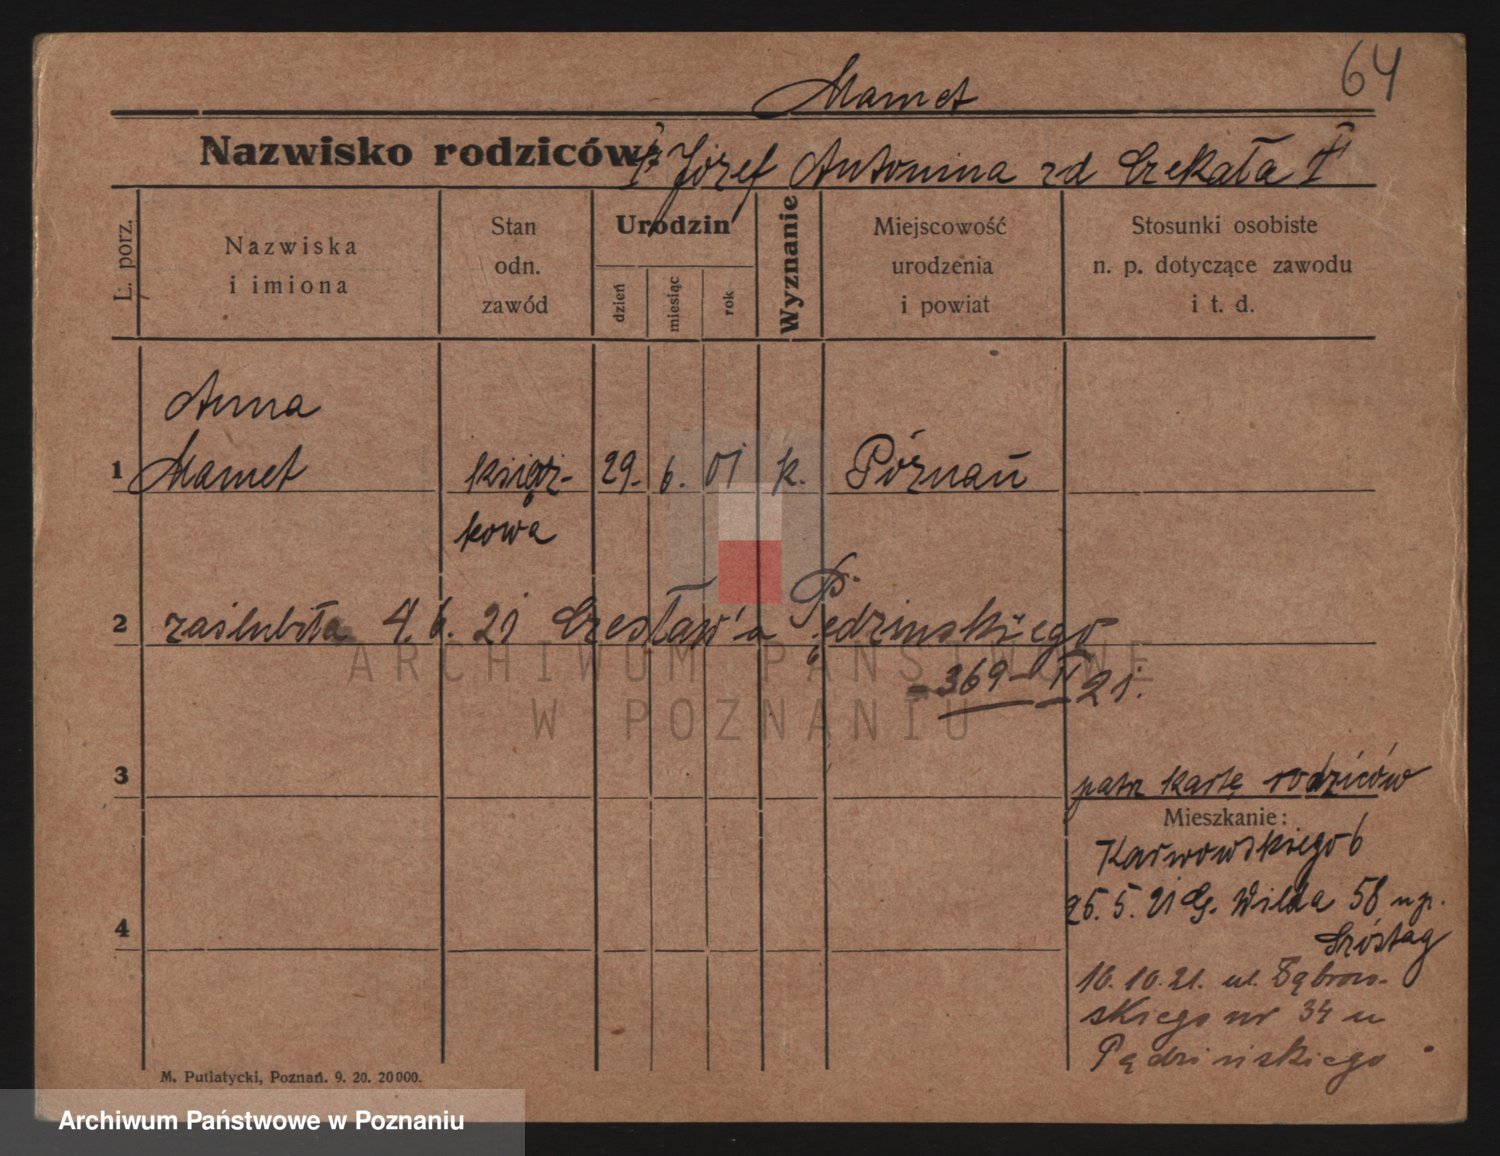 64
Mamet
Nazwisko rodziców: Józef Antonina zd Czekała
L. porz.
Nazwiska i imiona
Stan odn. zawód
Urodzin
dzień
miesiąc
rok
Wyznanie
Miejscowość urodzenia i powiat
Stosunki osobiste n. p. dotyczące zawodu i t. d.
Anna
1 Mamet księgż- 29. 6. 01 k. Poznań
kowa
2 zaślubiła 4. 6. 21 Czesław'a Pędzinskiego
369 - II 21.
3
patrz kartę rodziców
Mieszkanie:
Karwowskiego 6
26. 5. 21 G. Wilda 58 u p.
4
10. 10. 21. ul. Dąbrow-
skiego nr 34 u
Pądzińskiego
M. Putiatycki, Poznań. 9. 20. 20000.
ARCHIWUM PAŃSTWOWE
W POZNANIU
Archiwum Państwowe w Poznaniu